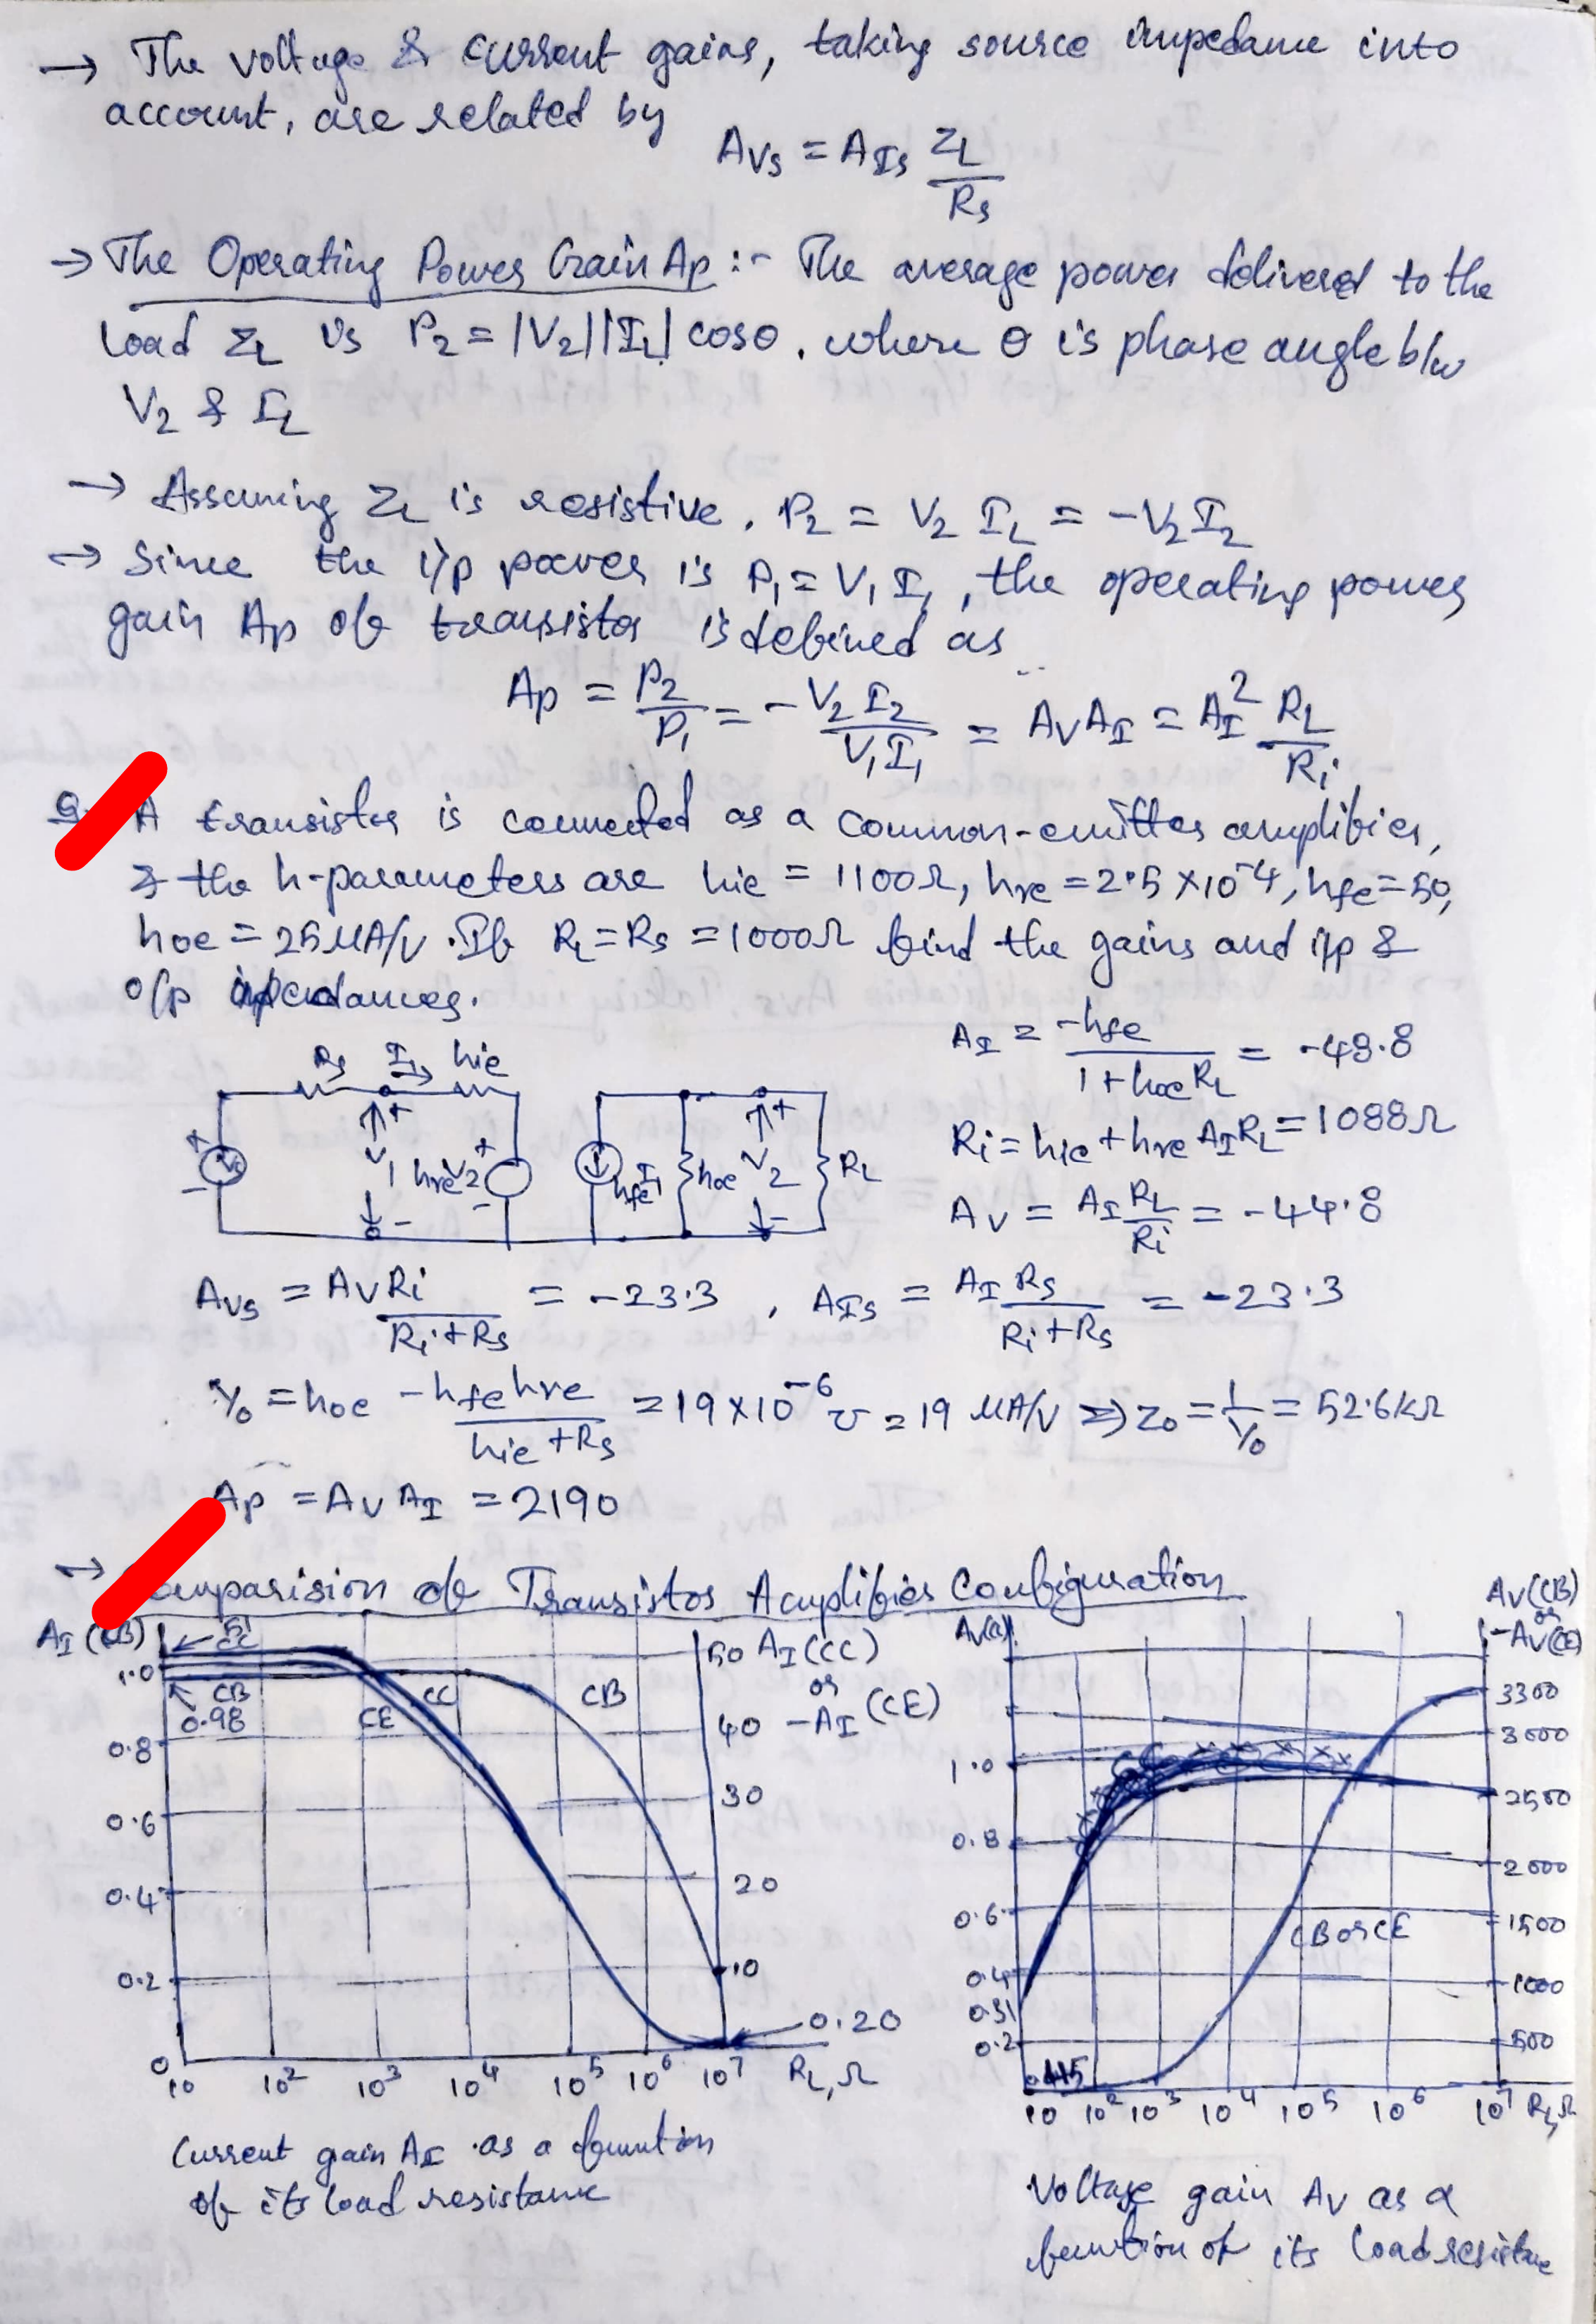 → The voltage & current gains, taking source impedance into
account, are related by
AVs = AIs ZL/Rs
→ The Operating Power Gain Ap :- The average power delivered to the
load ZL is P2 = |V2||IL| cosθ, where θ is phase angle b/w
V2 & IL
→ Assuming ZL is resistive, P2 = V2 IL = -V2 I2
→ Since the i/p power is P1 = V1 I1, the operating power
gain Ap of transistor is defined as
Ap = P2/P1 = -V2 I2/V1 I1 = AV AI = AI² RL/Ri
A transistor is connected as a common-emitter amplifier,
& the h-parameters are hie = 1100Ω, hre = 2.5 × 10^-4, hfe = 50,
hoe = 25 μA/V. If RL = Rs = 1000Ω find the gains and i/p &
o/p impedances.
AI = -hfe/1 + hoe RL = -48.8
Rs I1 hie
+ V1 - hre V2 + - hfe I1 hoe + V2 - RL
+ Vs -
Ri = hie + hre AI RL = 1088Ω
AV = AI RL/Ri = -44.8
AVs = AV Ri/Ri + Rs = -23.3, AIs = AI Rs/Ri + Rs = -23.3
Yo = hoe - hfe hre/hie + Rs = 19 × 10^-6 ℧ = 19 μA/V ⇒ Zo = 1/Yo = 52.6kΩ
Ap = AV AI = 2190
→ omparision of Transistor Amplifier Configuration
AI (CB)
51
CC
1.0
CB
0.98
CE
CC
CB
0.8
0.6
0.4
0.2
0
50 AI (CC)
or
40 -AI (CE)
30
20
10
0.20
10 10² 10³ 10⁴ 10⁵ 10⁶ 10⁷ RL, Ω
Current gain AI as a function
of its load resistance
AV (CB)
or
-AV (CE)
3300
3000
2500
2000
1500
1000
500
1.0
0.8
0.6
0.4
0.31
0.2
CB or CE
10 10² 10³ 10⁴ 10⁵ 10⁶ 10⁷ RL, Ω
Voltage gain AV as a
function of its load resistance